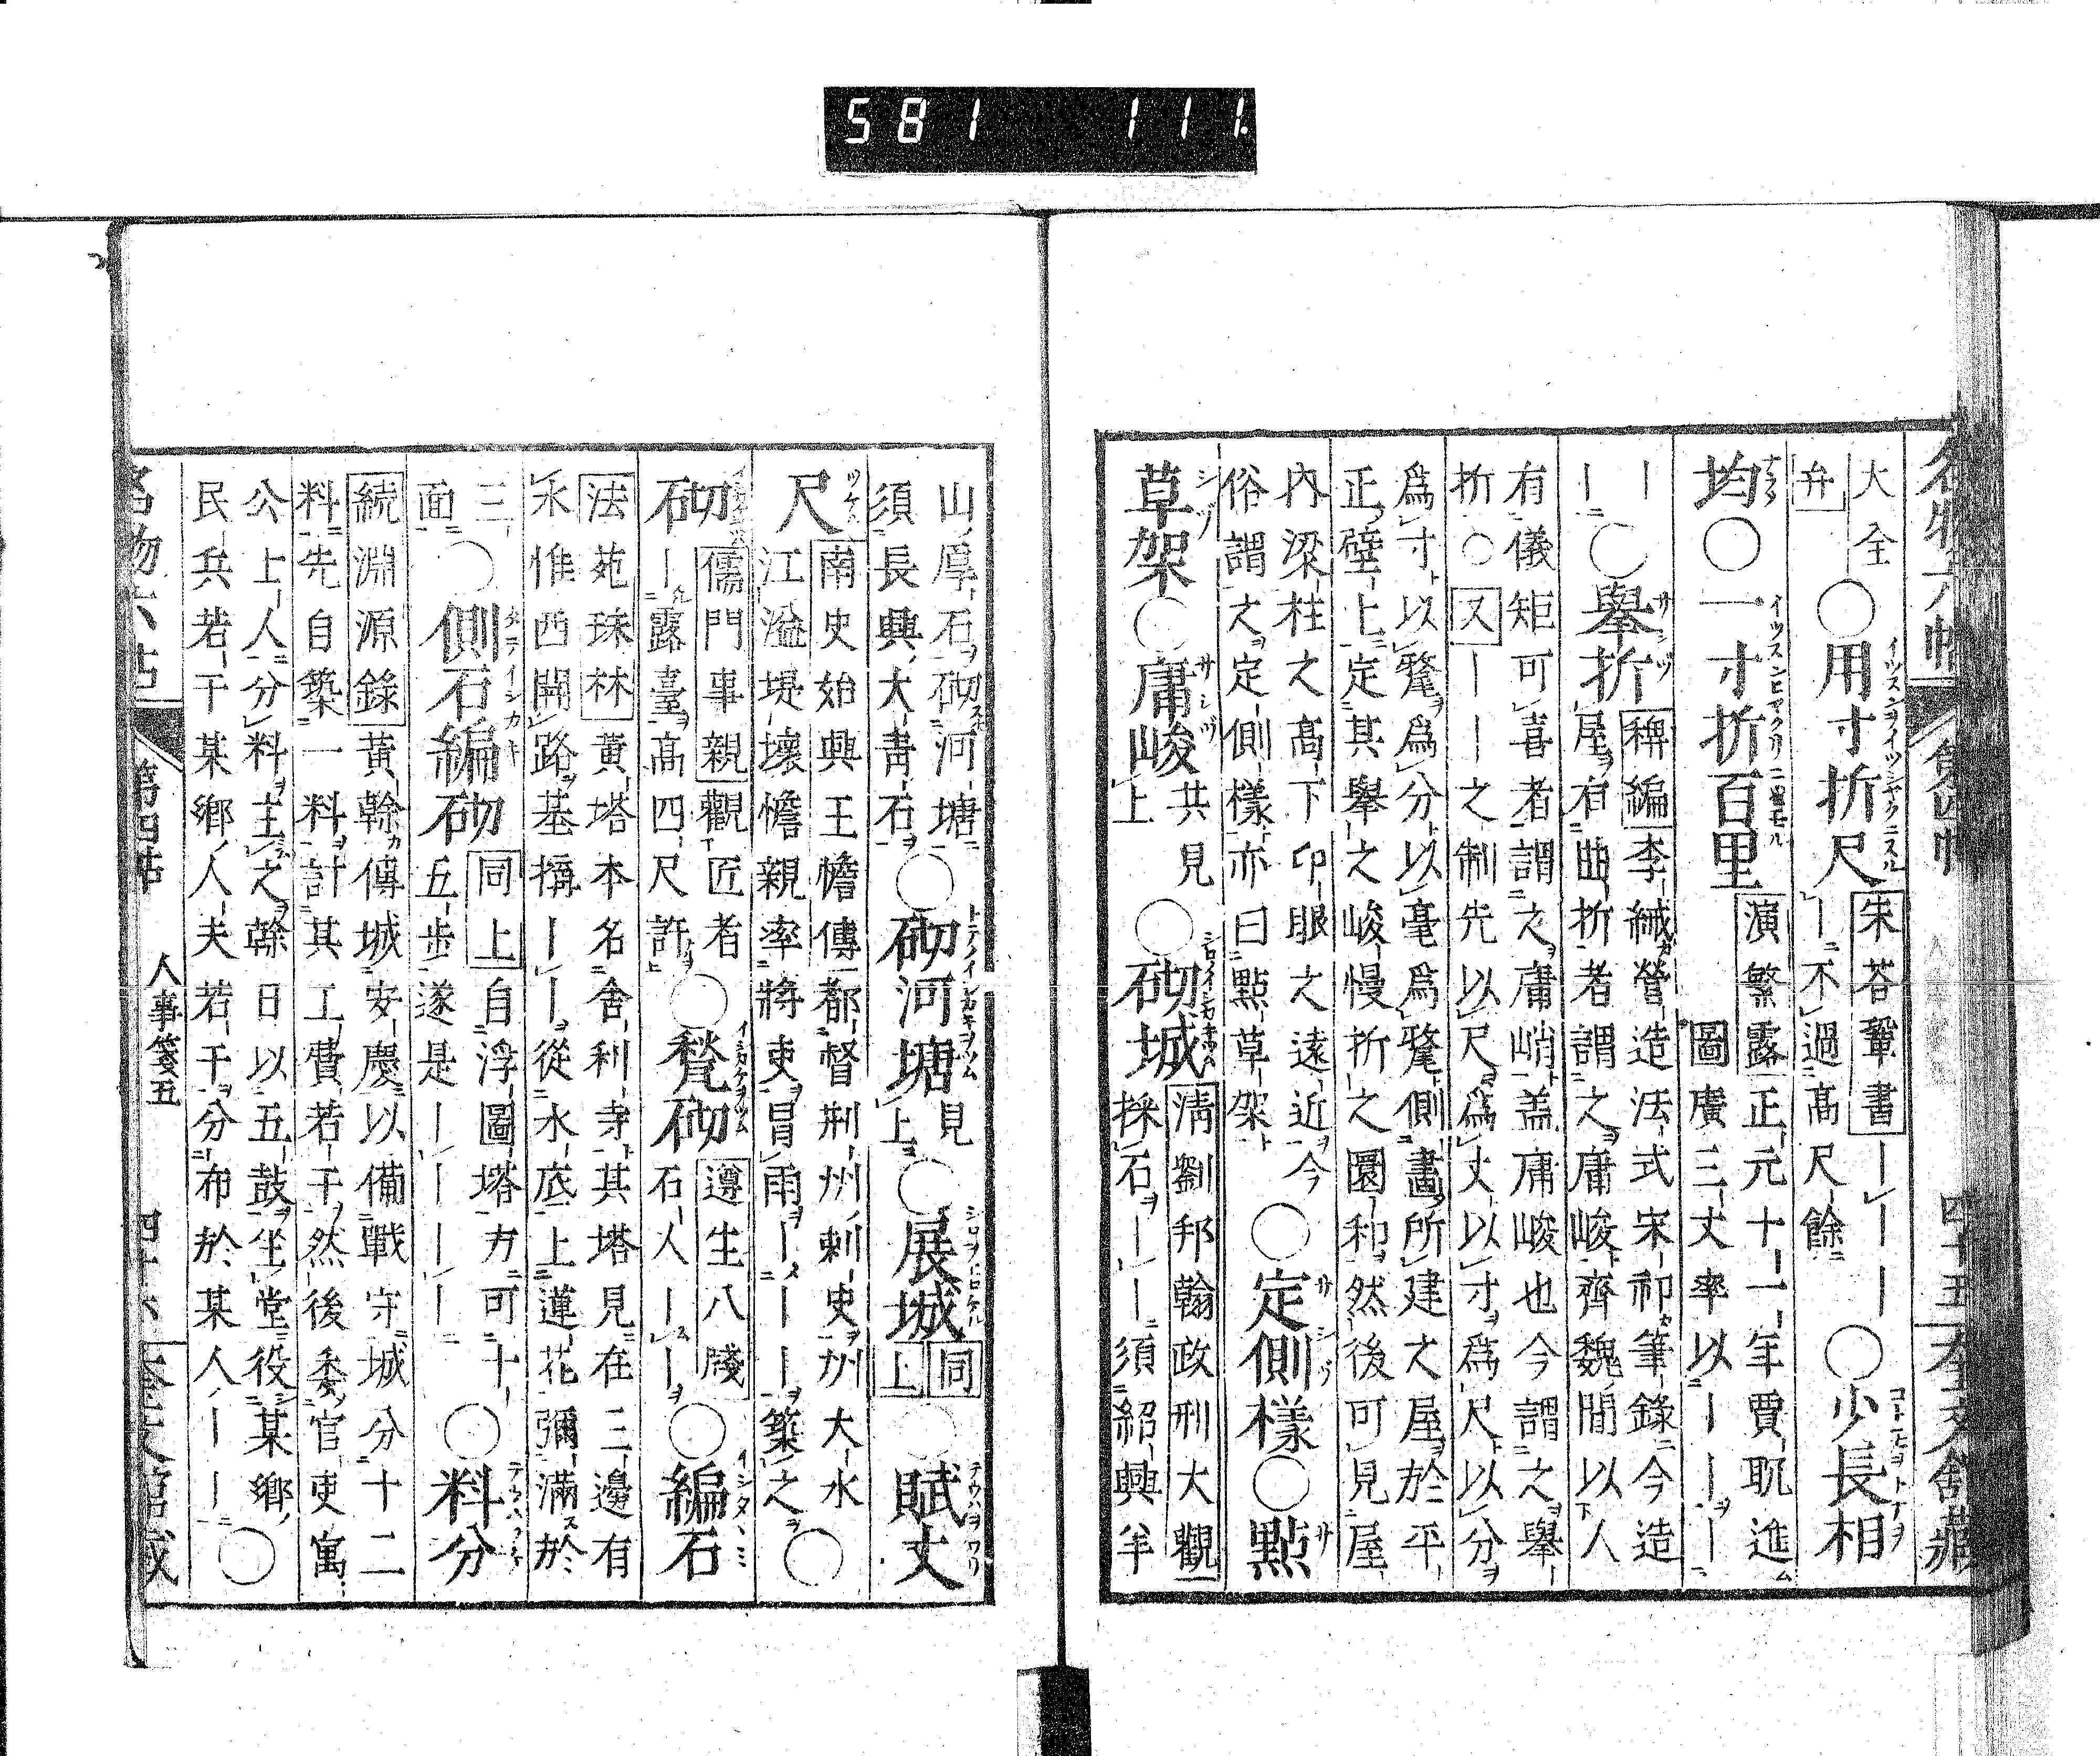 581 111.
大全
弁
○用寸折尺
朱荅鞏書
｜｜｜不過高尺餘
○少長相
均○一寸折百里
演繁露正元十一年賈耽進
圖廣三丈率以｜｜｜
｜｜○舉折
稗編李緘營造法式宋祁筆錄今造
屋有曲折者謂之庸峻齊魏間以人
有儀矩可喜者謂之庸峭盖庸峻也今謂之舉
折○又｜｜之制先以尺爲丈以寸爲尺以分
爲寸以釐爲分以毫爲釐側畫所建之屋於平
正壁上定其舉之峻慢折之圜和然後可見屋
内梁柱之高下卯眼之遠近今
俗謂之定側樣亦曰點草架
○定側樣○點
草架○庸峻
共見上
○砌城
淸劉邦翰政刑大觀
採石｜｜須紹興羊
山厚石砌河塘
須長興大靑石
○砌河塘
見上
○展城
同上
○賦丈
尺
南史始興王憺傳都督荆州刺史州大水
江溢堤壞憺親率將吏冒雨｜｜築之○
砌
儒門事親觀匠者
｜露臺高四尺許
○甃砌
遵生八牋
石人｜｜
○編石
法苑珠林黄塔本名舍利寺其塔見在三邊有
水惟西開路基搆｜｜從水底上蓮花彌滿於
三
面
○側石編砌
同上自浮圖塔方可十
五步遂是｜｜｜｜
○料分
続淵源錄黃榦傳城安慶以備戰守城分十二
料先自築一料計其工費若干然後委官吏寓
公上人分料主之榦日以五鼓坐堂役某鄉
民兵若干某鄉人夫若干分布於某人｜｜○
人事箋五